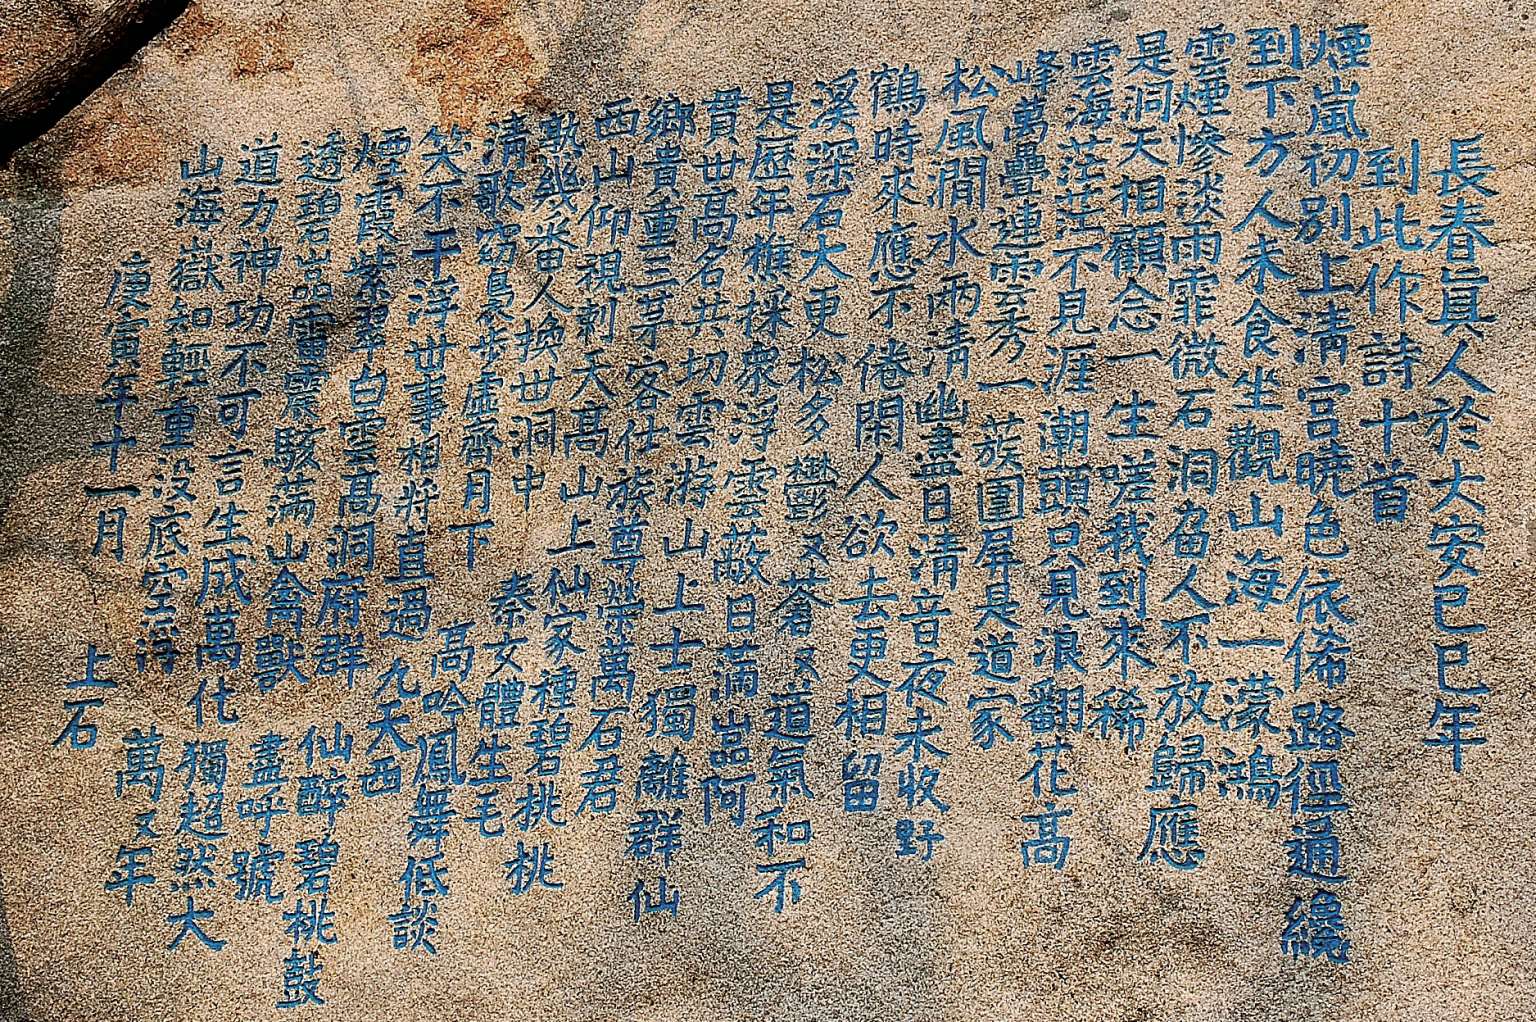 長春眞人於大安己巳年
到此作詩十首
煙嵐初别上清宫曉色依俙路徑通纔
到下方人未食坐觀山海一濛鴻
雲煙慘淡雨霏微石洞畱人不放歸應
是洞天相顧念一生嗟我到來稀
雲海茫茫不見涯潮頭只見浪翻花高
峰萬疊連雲秀一蔟圍屏是道家
松風澗水兩清幽盡日清音夜未收野
鶴時來應不倦閑人欲去更相留
溪深石大更松多鬱又蒼又道氣和不
是歷年樵採衆浮雲蔽日滿嵓阿
貫世高名共切雲游山上士獨離群仙
鄉貴重三茅客仕族尊榮萬石君
西山仰視刺天高山上仙家種碧桃桃
熟幾番人換世洞中秦女體生毛
清歌窈裊步虛齊月下高吟鳳舞低談
笑不干浮世事相將直過九天西
煙霞紫翠白雲高洞府群仙醉碧桃鼓
透碧嵓靈震駭滿山禽獸盡呼號
道力神功不可言生成萬化獨超然大
山海嶽知輕重没底空浮萬又年
庚寅年十一月 上石